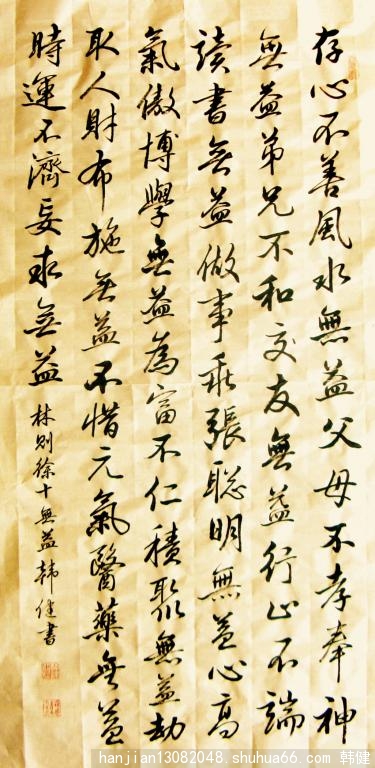 存心不善風水無益父母不孝奉神
無益弟兄不和交友無益行止不端
讀書無益做事乖張聪明無益心高
氣傲博學無益為富不仁積聚無益劫
取人財布施無益不惜元氣醫藥無益
時運不濟妄求無益
林则徐十無益韩健書
hanjian13082048.shuhua66.com 韩健